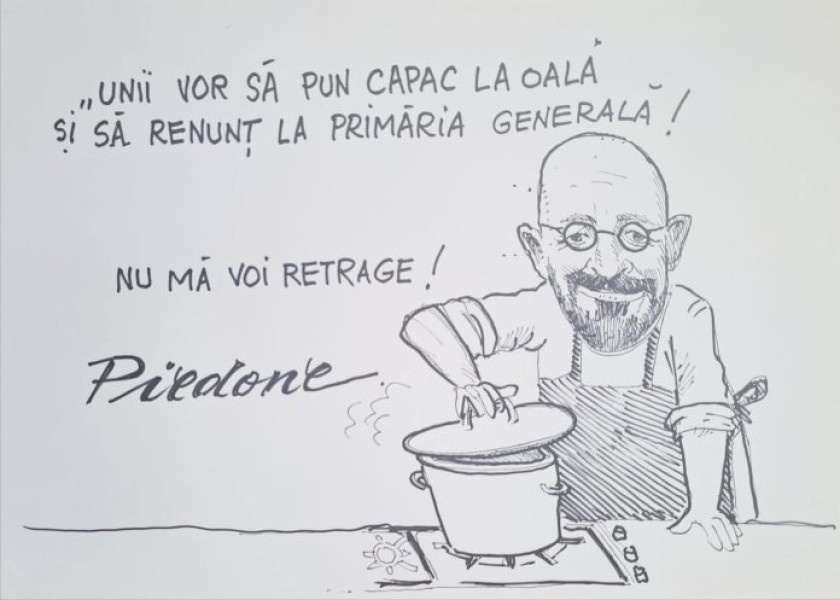 „UNII VOR SĂ PUN CAPAC LA OALĂ
ȘI SĂ RENUNȚ LA PRIMĂRIA GENERALĂ!
NU MĂ VOI RETRAGE!
Piedone